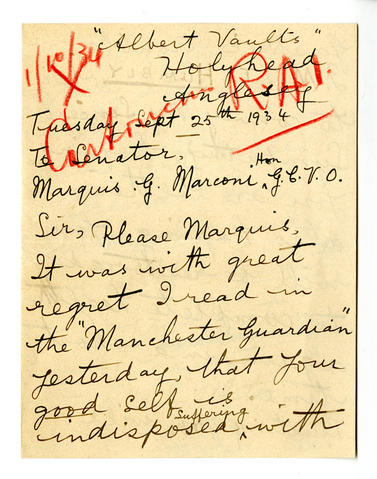 "Albert Vaults"
Holyhead
Anglesey
1/10/34
R.A.
Tuesday Sept 25th 1934
To Senator,
Marquis G. Marconi Hon G.C.V.O.
Sir, Please Marquis,
It was with great
regret I read in
the "Manchester Guardian"
yesterday, that your
good self is
indisposed, suffering with